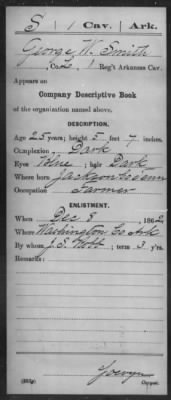 S | 1 Cav. | Ark.
George W. Smith
Co. L, 1 Reg't Arkansas Cav.
Appears on
Company Descriptive Book
of the organization named above.
DESCRIPTION.
Age 25 years; height 5 feet 7 inches.
Complexion Dark
Eyes Blue; hair Dark
Where born Jackson Co Tenn
Occupation Farmer
ENLISTMENT.
When Dec 8, 1862
Where Washington Co Ark
By whom J. S. Robb; term 3 y'rs.
Remarks:
Copyist.